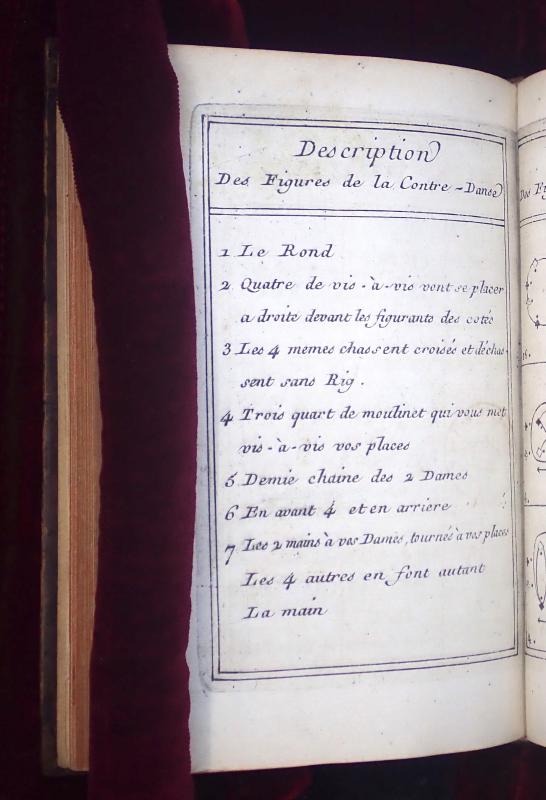 Description
Des Figures de la Contre-Danse
1 Le Rond
2 Quatre de vis-à-vis vont se placer
a droite devant les figurants des cotés
3 Les 4 memes chassent croisés et déchas-
sent sans Rig.
4 Trois quart de moulinet qui vous met
vis-à-vis vos places
5 Demie chaine des 2 Dames
6 En avant 4 et en arriere
7 Les 2 mains à vos Dames, tournés à vos places
Les 4 autres en font autant
La main
Des Fig